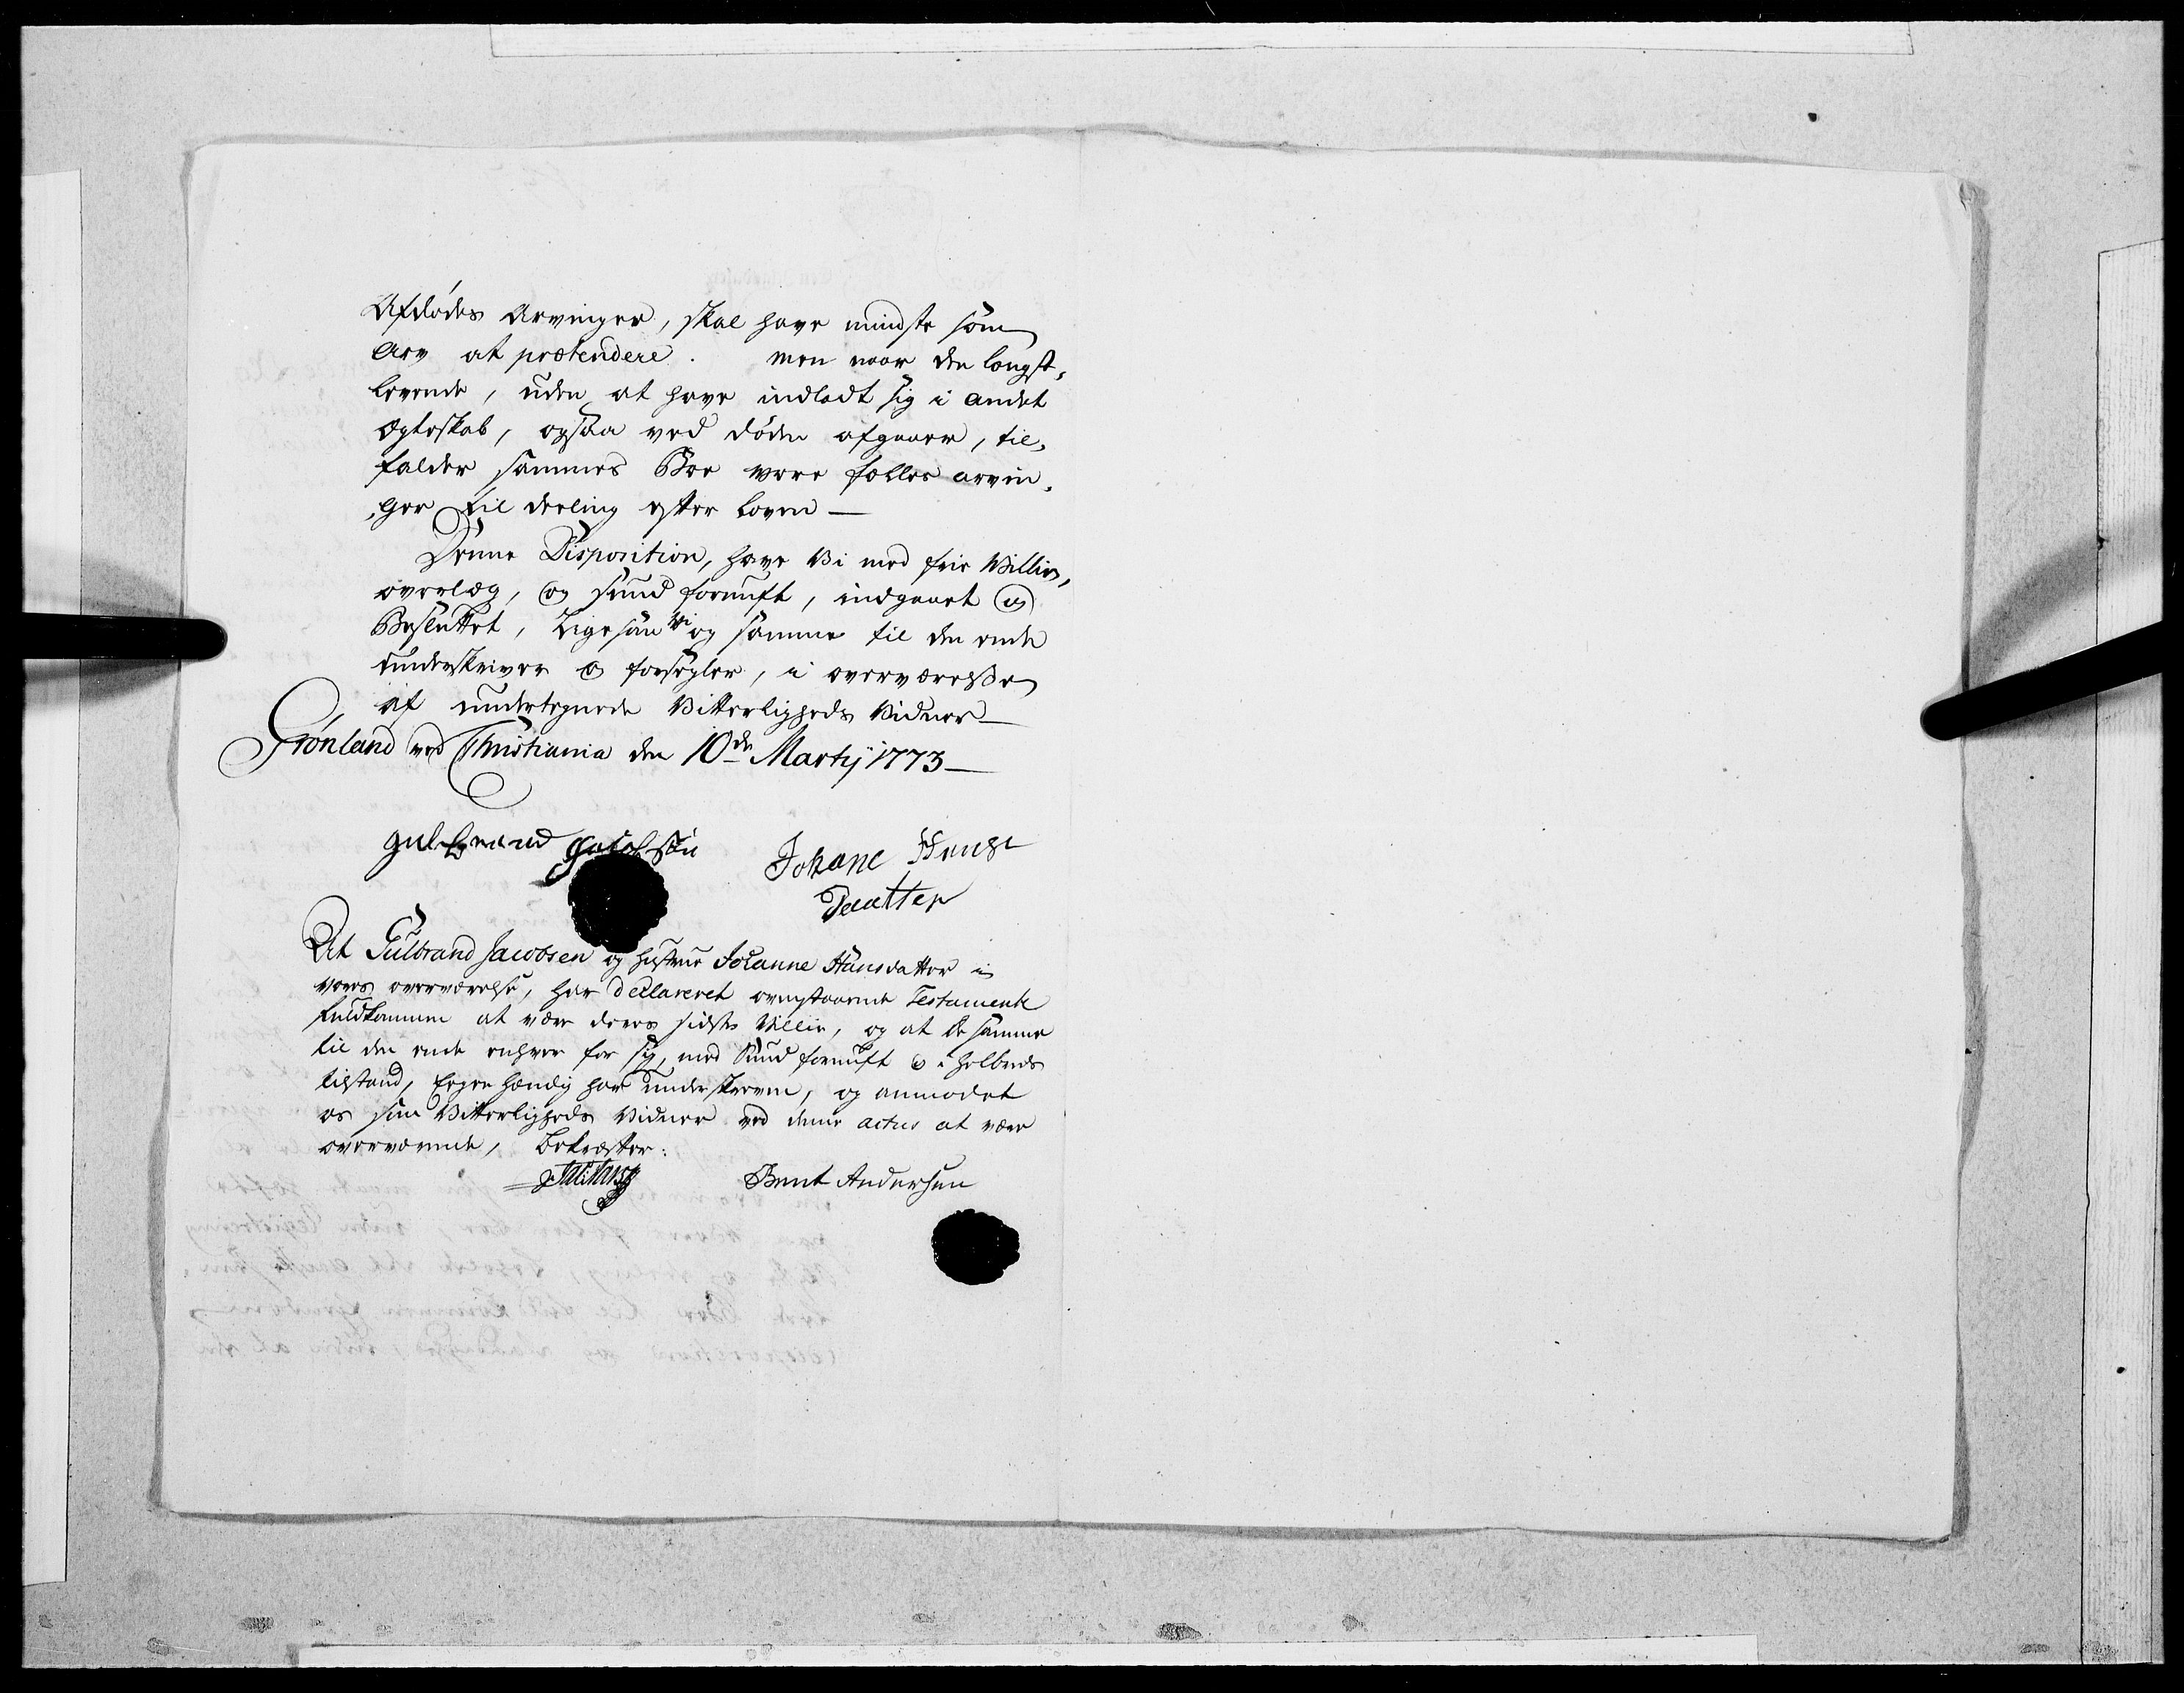 Afdødes Arvinger, skal have mindste som
Arv at prætendere. men naar den længst-
levende, uden at have indladt sig i andet
Ægteskab, ogsaa ved døden afgaaer, til-
falder sammes Boe vore fælles arvin-
ger til deeling efter loven —
Denne Disposition, have Vi med frie Villie,
overlæg, og sund fornuft, indgaaet og
Besluttet, Ligesom Vi og samme til den ende
underskriver og forsegler, i overværelse
af undertegnede Vitterligheds Vidner —
Grønland ved Christiania den 10de Martij 1773 —
gulbrand Jacobsen Johane Hans
Daatter
At Gulbrand Jacobsen og hustrue Johanne Hansdatter i
vores overværelse, har declareret ovenstaaende Testamente
fuldkommen at være deres sidste Villie, og at de samme
til den ende enhver for sig, med Sund fornuft og i helbreds
tilstand, egenhændig har underskreven, og anmodet
os som Vitterligheds Vidner ved denne actus at være
overværende, bekræfter:
Bent Andersen